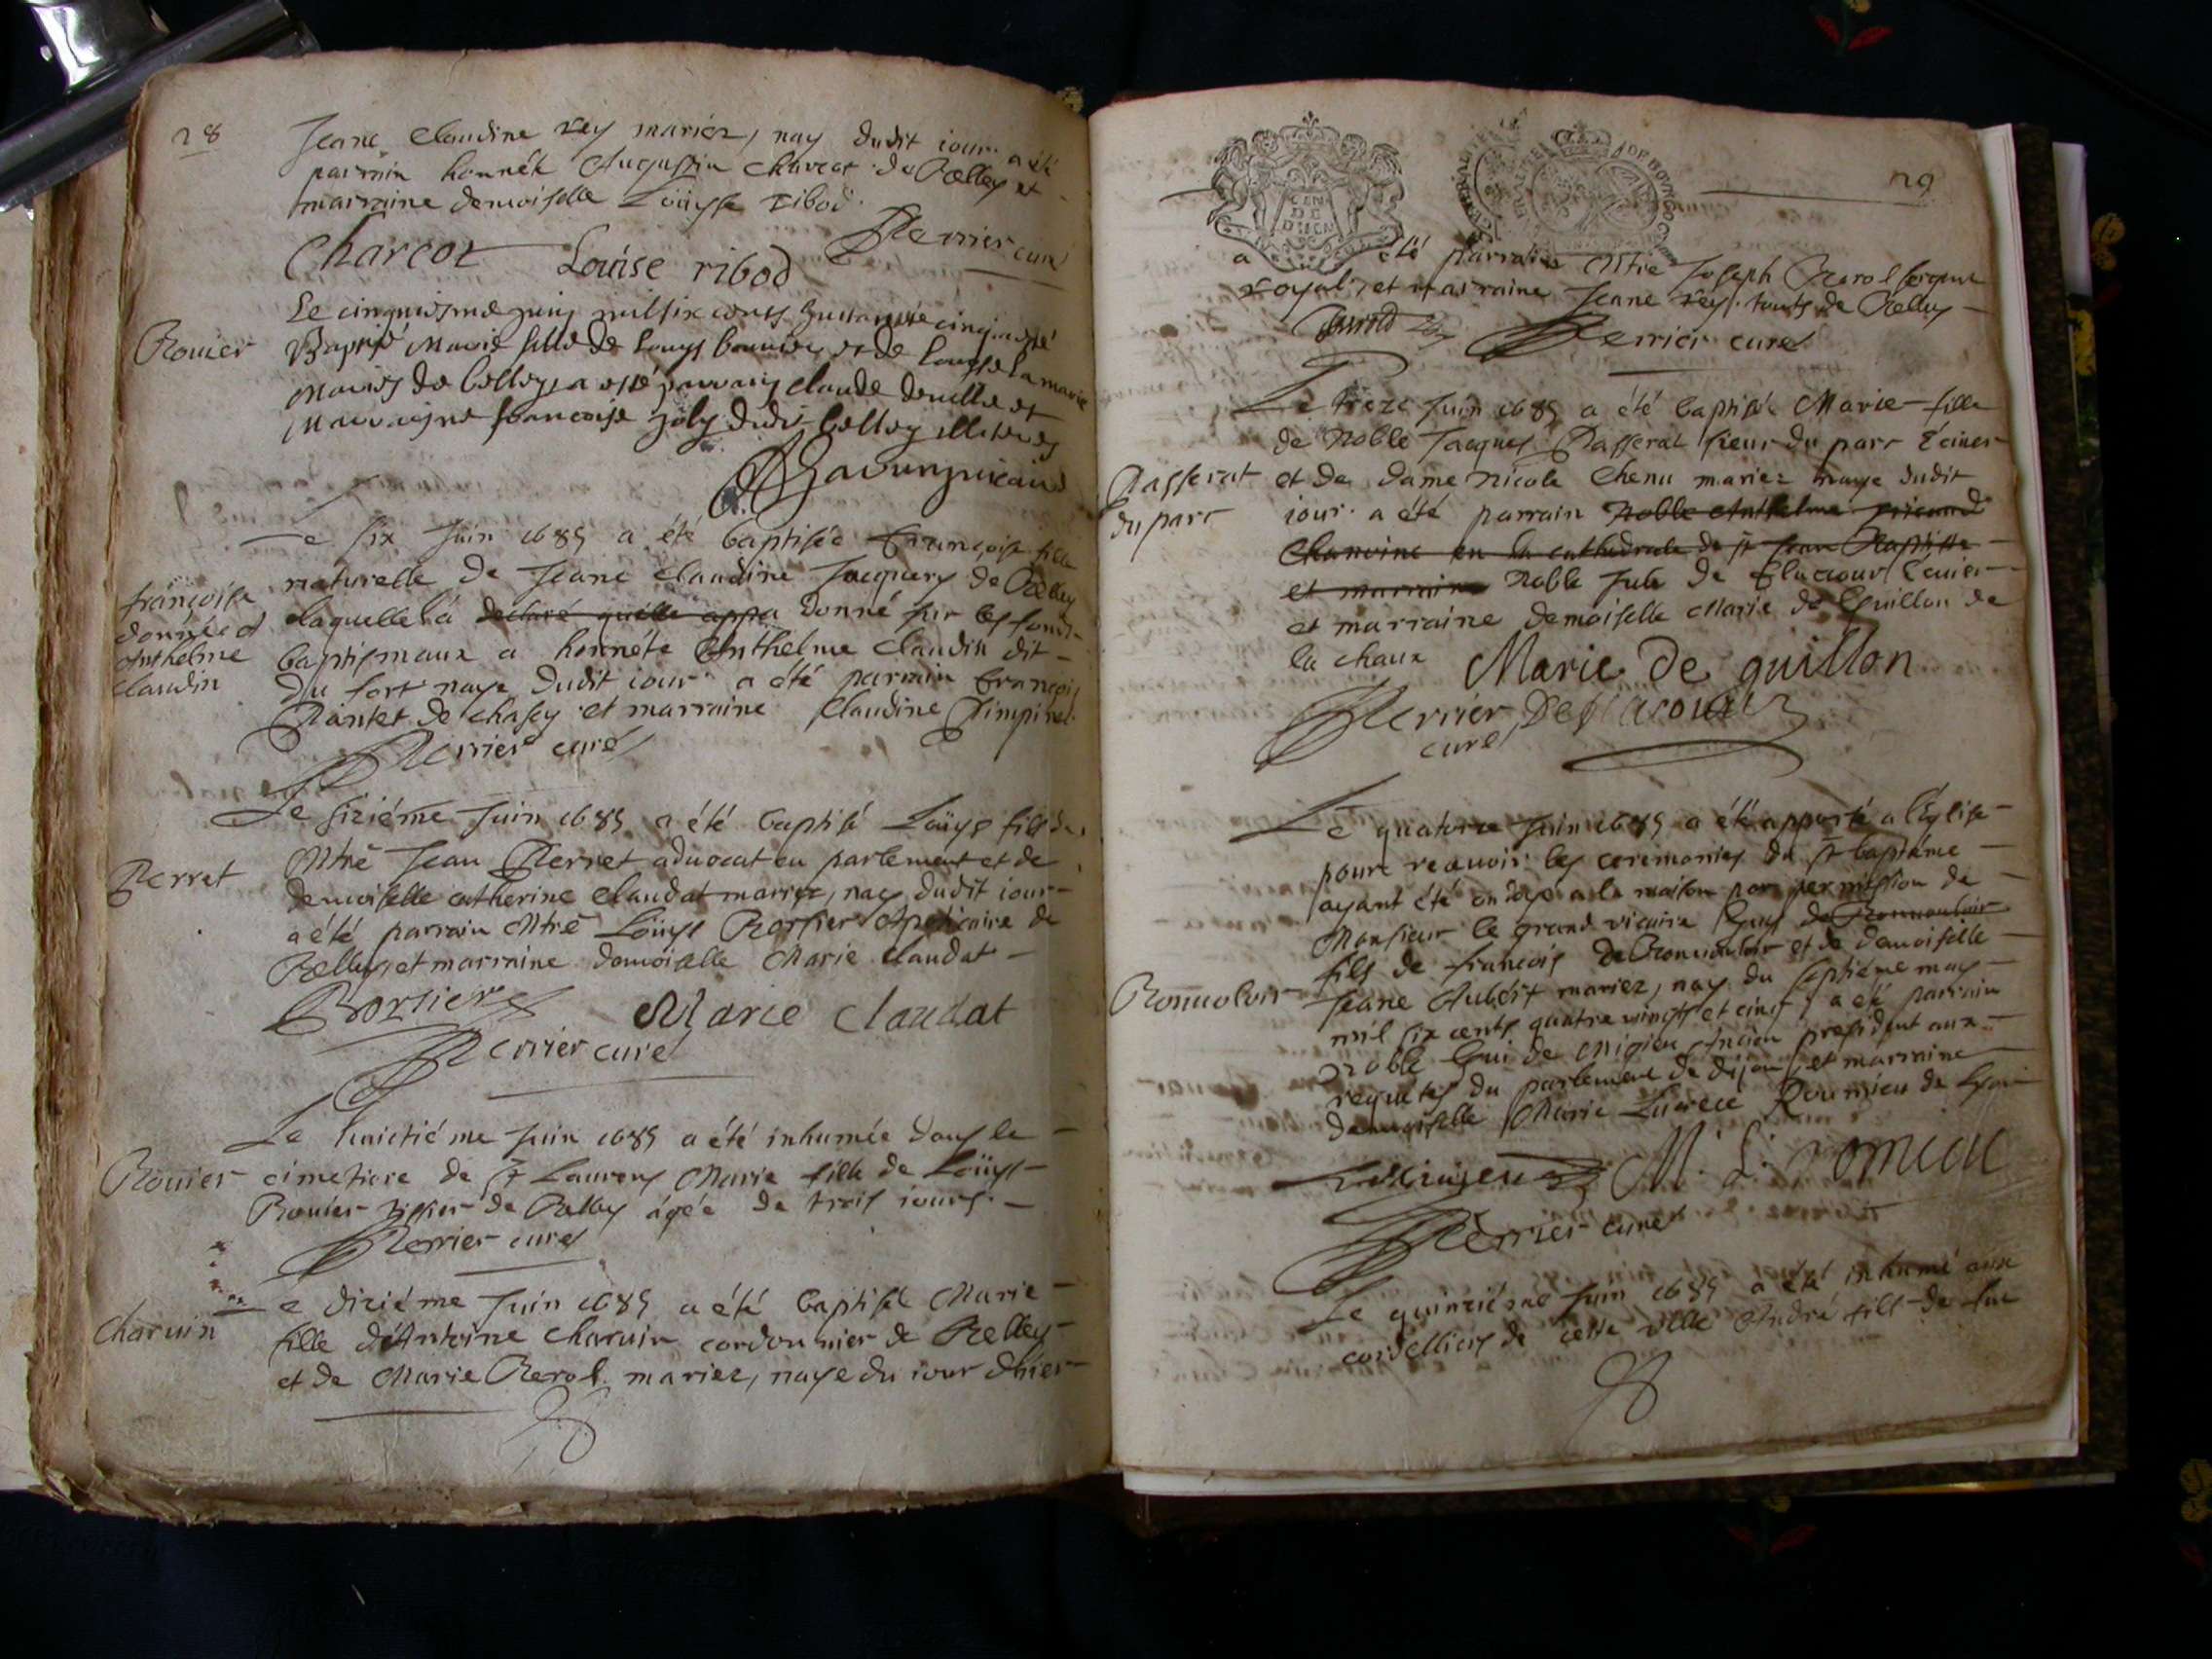 28
Jeane Claudine rey mariez, nay dudit iour a été
parrain honnête Augustin Charcot de Belley et
marraine demoiselle Loüyse ribod
Perrier curé
Charcot Louise ribod
Le cinquiesme juin mil six cents huitante cinq a esté
Bouier
Baptisé Marie fille de Louys bouuier et de Louyse la marie
mariés de belley, a esté parrain claude deuille et
Marraine francoise joly dudit belley illiteres
Le six Juin 1685 a été baptisée Françoise fille
naturelle de Jeane Claudine Jacquery de Belley
françoise
donnée a
Anthelme
Claudin
laquelle l'á declaré quélle appa donné sur les fonds
baptismaux a honnéte Anthelme Claudin dit
du fort naye dudit iour a été parrain François
Pantet de Chasey et marraine Claudine Pimpinel
Perrier curé
Le siziéme Juin 1685 a été baptisé Loüys fils de
Perret
Mtre Jean Perret aduocat en parlement et de
demoiselle catherine Claudat mariez, nay dudit iour
a été parrain Mtre Loüys Borsier Apoticaire de
Belley, et marraine demoiselle Marie Claudat
Borsier Marie Claudat
Perrier curé
Le huictiéme Juin 1685 a été inhumée dans le
Bouier
cimetiere de St Laurens Marie fille de Loüys
Bouier tissier de Belley ágée de trois iours
Perrier curé
Le diziéme Juin 1685 a été baptisée Marie
Charuin
fille d'Antoine Charuin cordonnier de Belley
et de Marie Berol mariez, naye du iour d'hier
29
a été parrain Mtre Joseph Berol sergent
royal, et marraine Jeane rey touts de Belley
Perrier curé
Le treze Juin 1685 a été baptisée Marie fille
de Noble Jacques Passerat sieur du parc Ecuier
Passerat
du parc
et de dame Nicole Chenu mariez naye dudit
iour a été parrain Noble Anthelme
Chanoine en la cathedrale de St Jean Baptiste
et marraine Noble de Ecuier
et marraine demoiselle Marie de Guillon de
la chaux Marie de guillon
Perrier
curé
Le quatorze Juin 1685 a été apporté a l'Eglise
pour receuoir les ceremonies du St baptéme
ayant été ondoyé a la maison par permission de
Monsieur le grand vicaire Guy
fils de François et de demoiselle
Jeane Aubert mariez, nay du septiéme may
mil six cents quatre vingts et cinq, a été parrain
Noble Gui de Migieu Ancien president aux
requetes du parlement de dijon, et marraine
demoiselle Marie Lucrece Roumieu de Lyon
Perrier curé
Le quinziéme Juin 1685 a été inhumé aux
cordelliers de cette ville André fils de feu